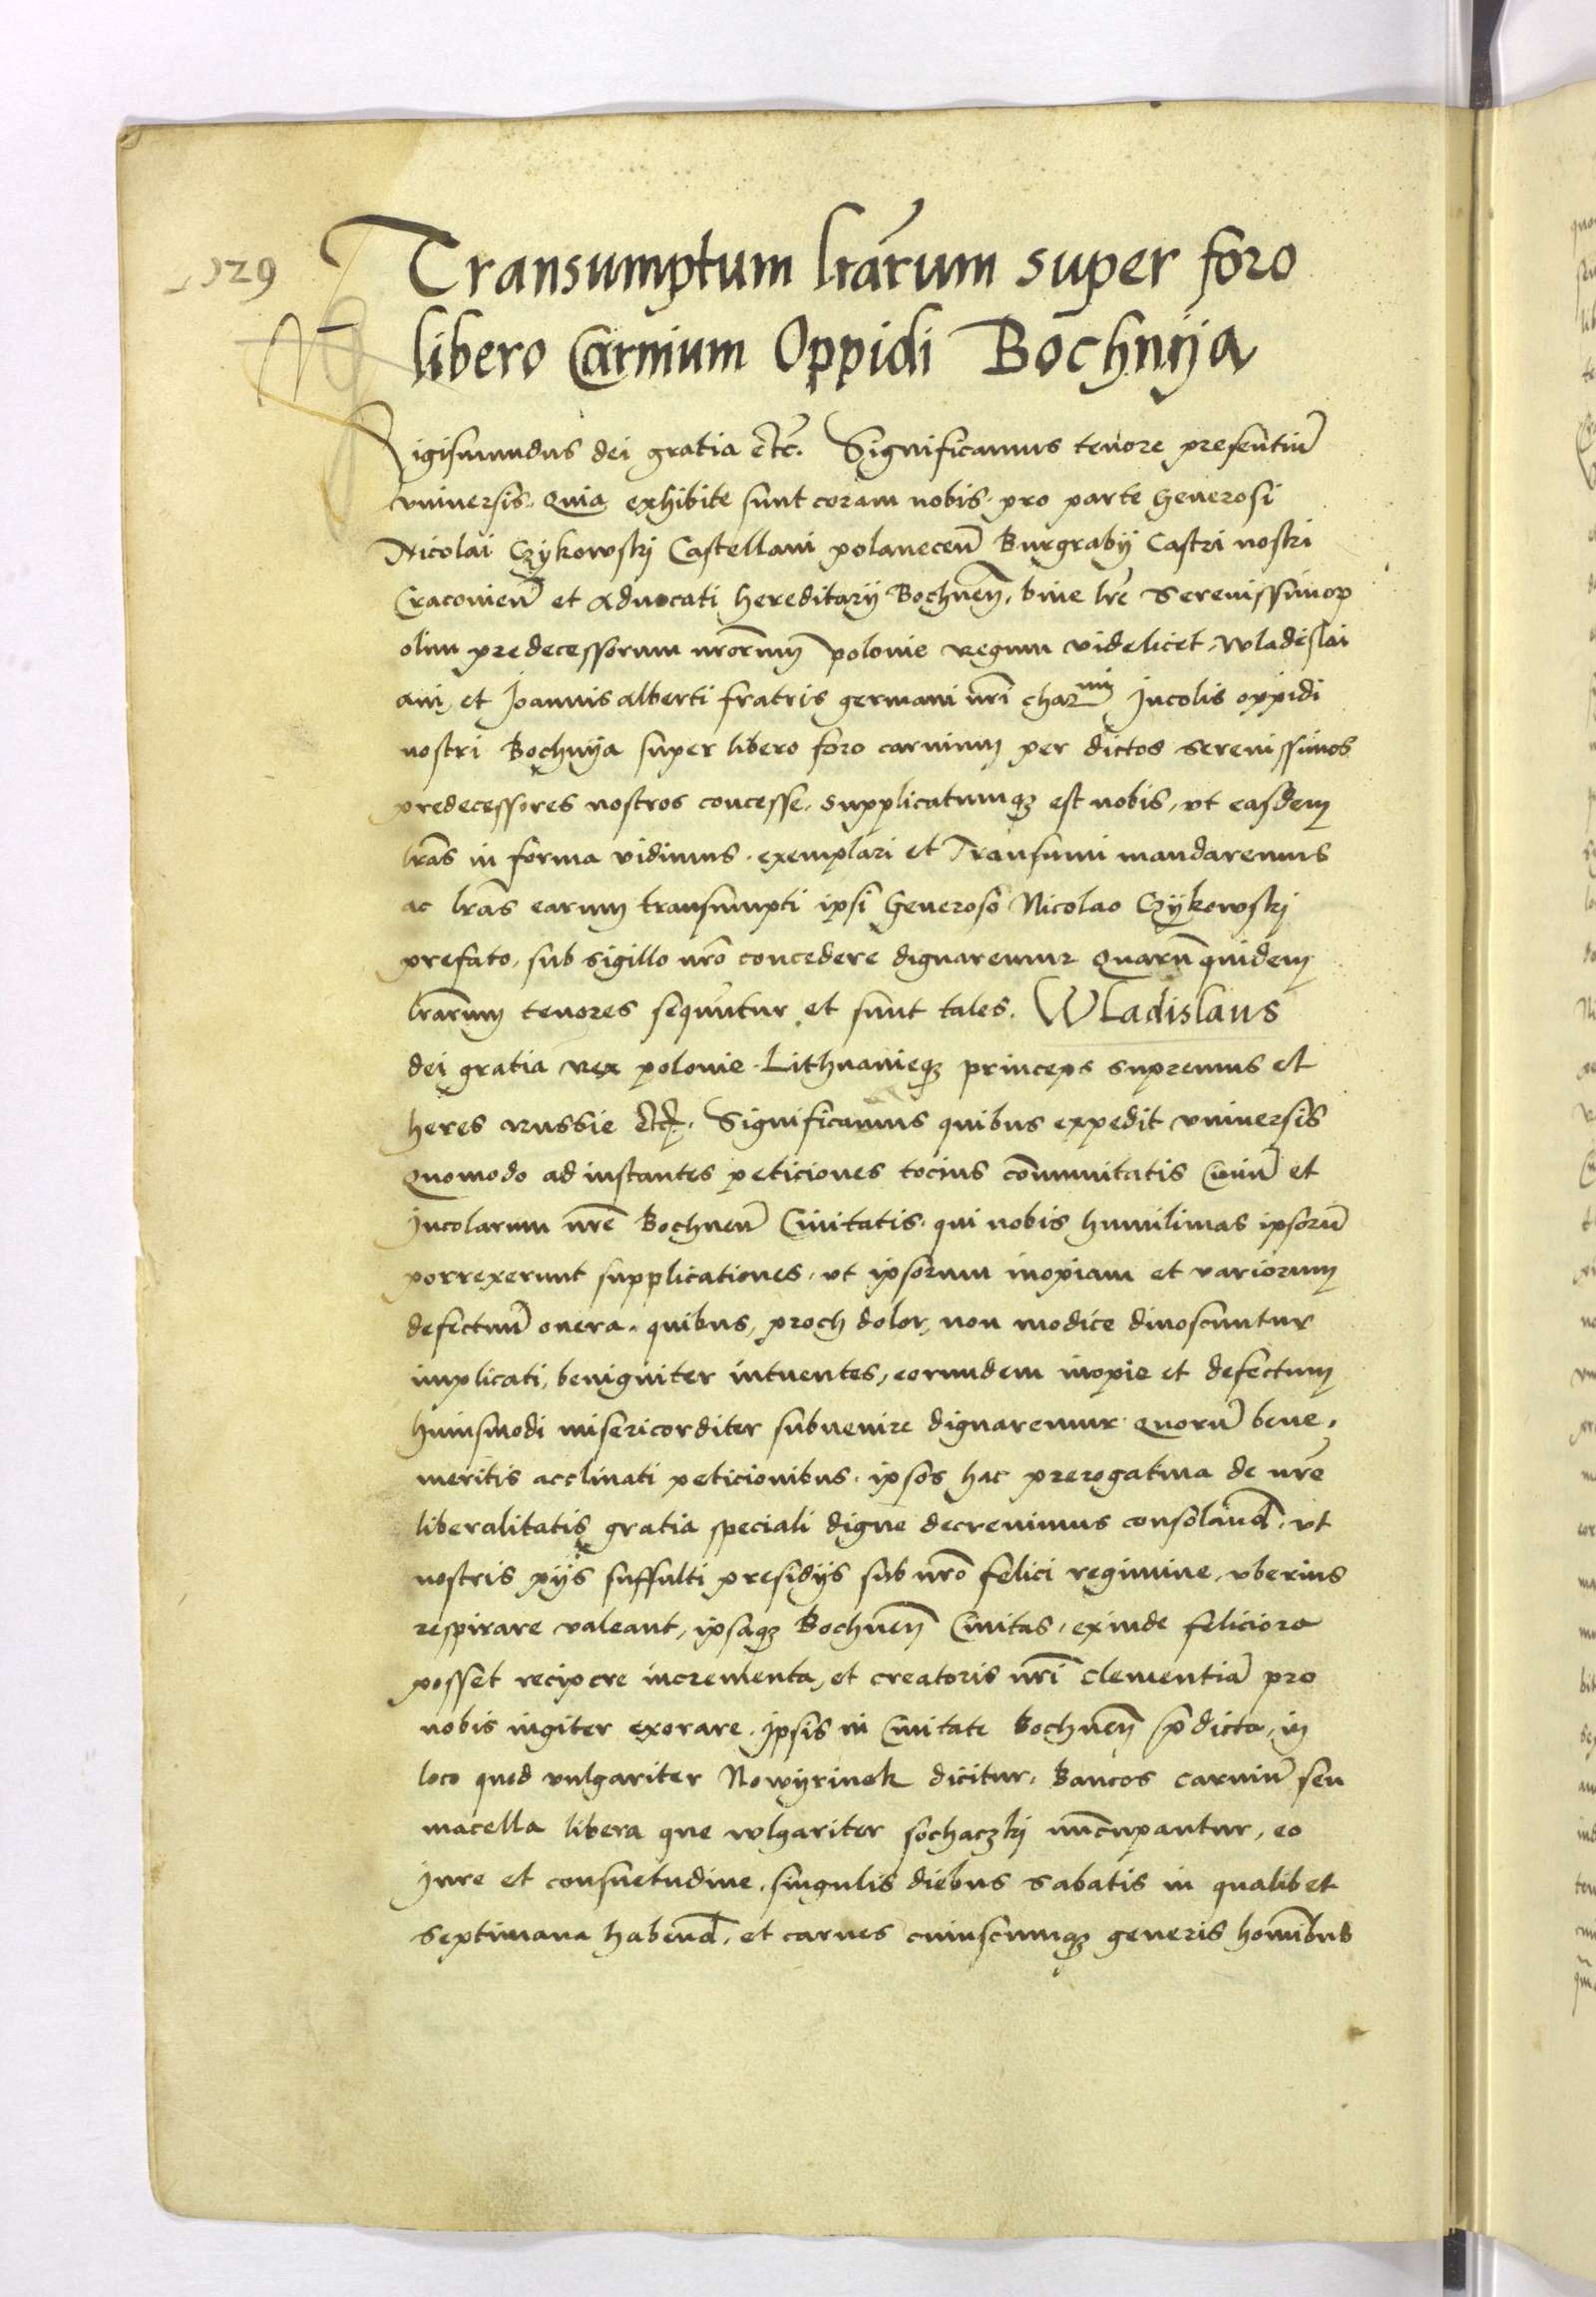 Transumptum lrarum super foro
libero Carnium Oppidi Bochnija
Sigismundus dei gratia etc. Significamus tenore presentiu
vniuersis. Quia exhibite sunt coram nobis. pro parte Generosi
Nicolai Czykowskj Castellani polanecen Burgrabij Castri nostri
Cracouien et Aduocati hereditarij Bochnen, bine lre Serenissimor
olim predecessorum nrorum polonie regum videlicet, Wladislai
aui, et Joannis alberti fratris germani nri charmi, Incolis oppidi
nostri Bochnija super libero foro carnium per dictos serenissimos
predecessores nostros concesse, supplicatumq est nobis, vt easdem
lras in forma vidimus. exemplari et Transumi mandaremus
ac lras earum transumpti ipsi Generoso Nicolao Czykowskj
prefato, sub sigillo nro concedere dignaremur Quaru quidem
lrarum tenores sequntur et sunt tales. Wladislaus
dei gratia rex polonie. Lithuanieq princeps supremus et
heres russie etc. Significamus quibus expedit vniuersis
Quomodo ad instantes peticiones tocius communitatis Ciuiu et
Incolarum nre Bochnen Ciuitatis. qui nobis humilimas ipsoru
porrexerunt supplicationes, vt ipsorum inopiam et variorum
defectuu onera. quibus, proch dolor, non modice dinoscuntur
implicati, benigniter intuentes, eorundem inopie et defectum
huiusmodi misericorditer subuenire dignaremur Quoru bene,
meritis acclinati peticionibus. ipsos hac prerogatiua de nre
liberalitatis gratia speciali digne decreuimus consoland, vt
nostris pijs suffulti presidijs sub nro felici regimine, vberius
respirare valeant, ipsaq Bochnen Ciuitas, exinde feliciora
posset recipere incrementa, et creatoris nri Clementia pro
nobis iugiter exorare. Ipsis in Ciuitate bochnen pdicta, in
loco quod vulgariter Nowyrinek dicitur, Bancos carniu seu
macella libera que wlgariter sochaczkj nuncupantur, eo
Iure et consuetudine, singulis diebus sabatis in qualibet
septimana habend, et carnes cuiuscumq generis hominbus